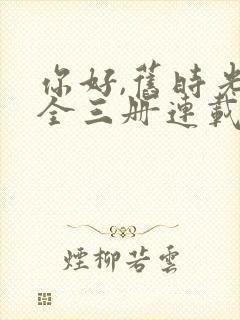 你好,舊時光
全三册連載
煙柳若雲